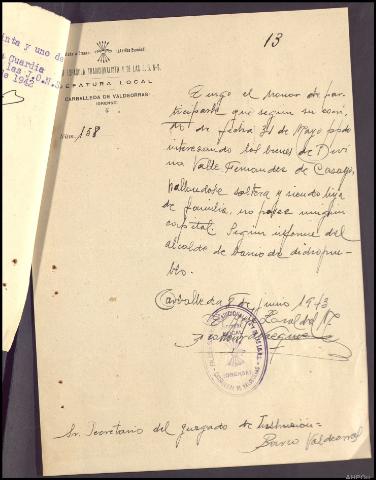 inta y uno de
Guardia
las J.O.N.S.
de 1942
13
TRADICIONALISTA Y DE LAS J.O.N-S
JEFATURA LOCAL
CARBALLEDA DE VALDEORRAS
(ORENSE)
Núm. 158
Tengo el honor de par-
ticiparle que segun su comu
de fecha 31 de Mayo ppdo
interesando los bienes de Divi
na Valle Fernandez de Casayo,
hallandose soltera y siendo hija
de familia, no posee ningun
capital. Segun informe del
alcalde de barrio de dicho pue-
blo.
Carballeda de Junio 1943
El Jefe Local del M
CARBALLEDA DE VALDEORRAS
(ORENSE)
Sr. Secretario del Juzgado de Instrucción=
Barco Valdeorras
AHPOu